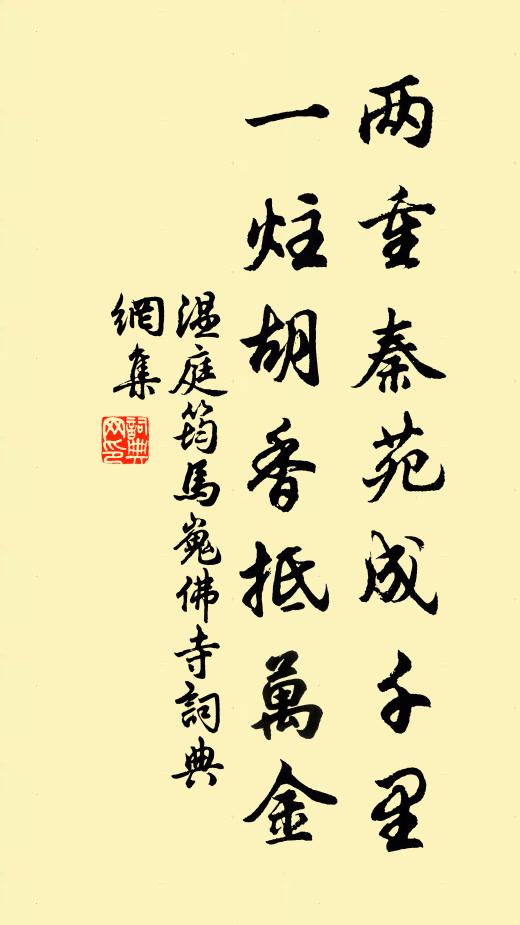 两重秦苑成千里
一炷胡香抵萬金
温庭筠馬嵬佛寺詞典
網集
詞典
网印